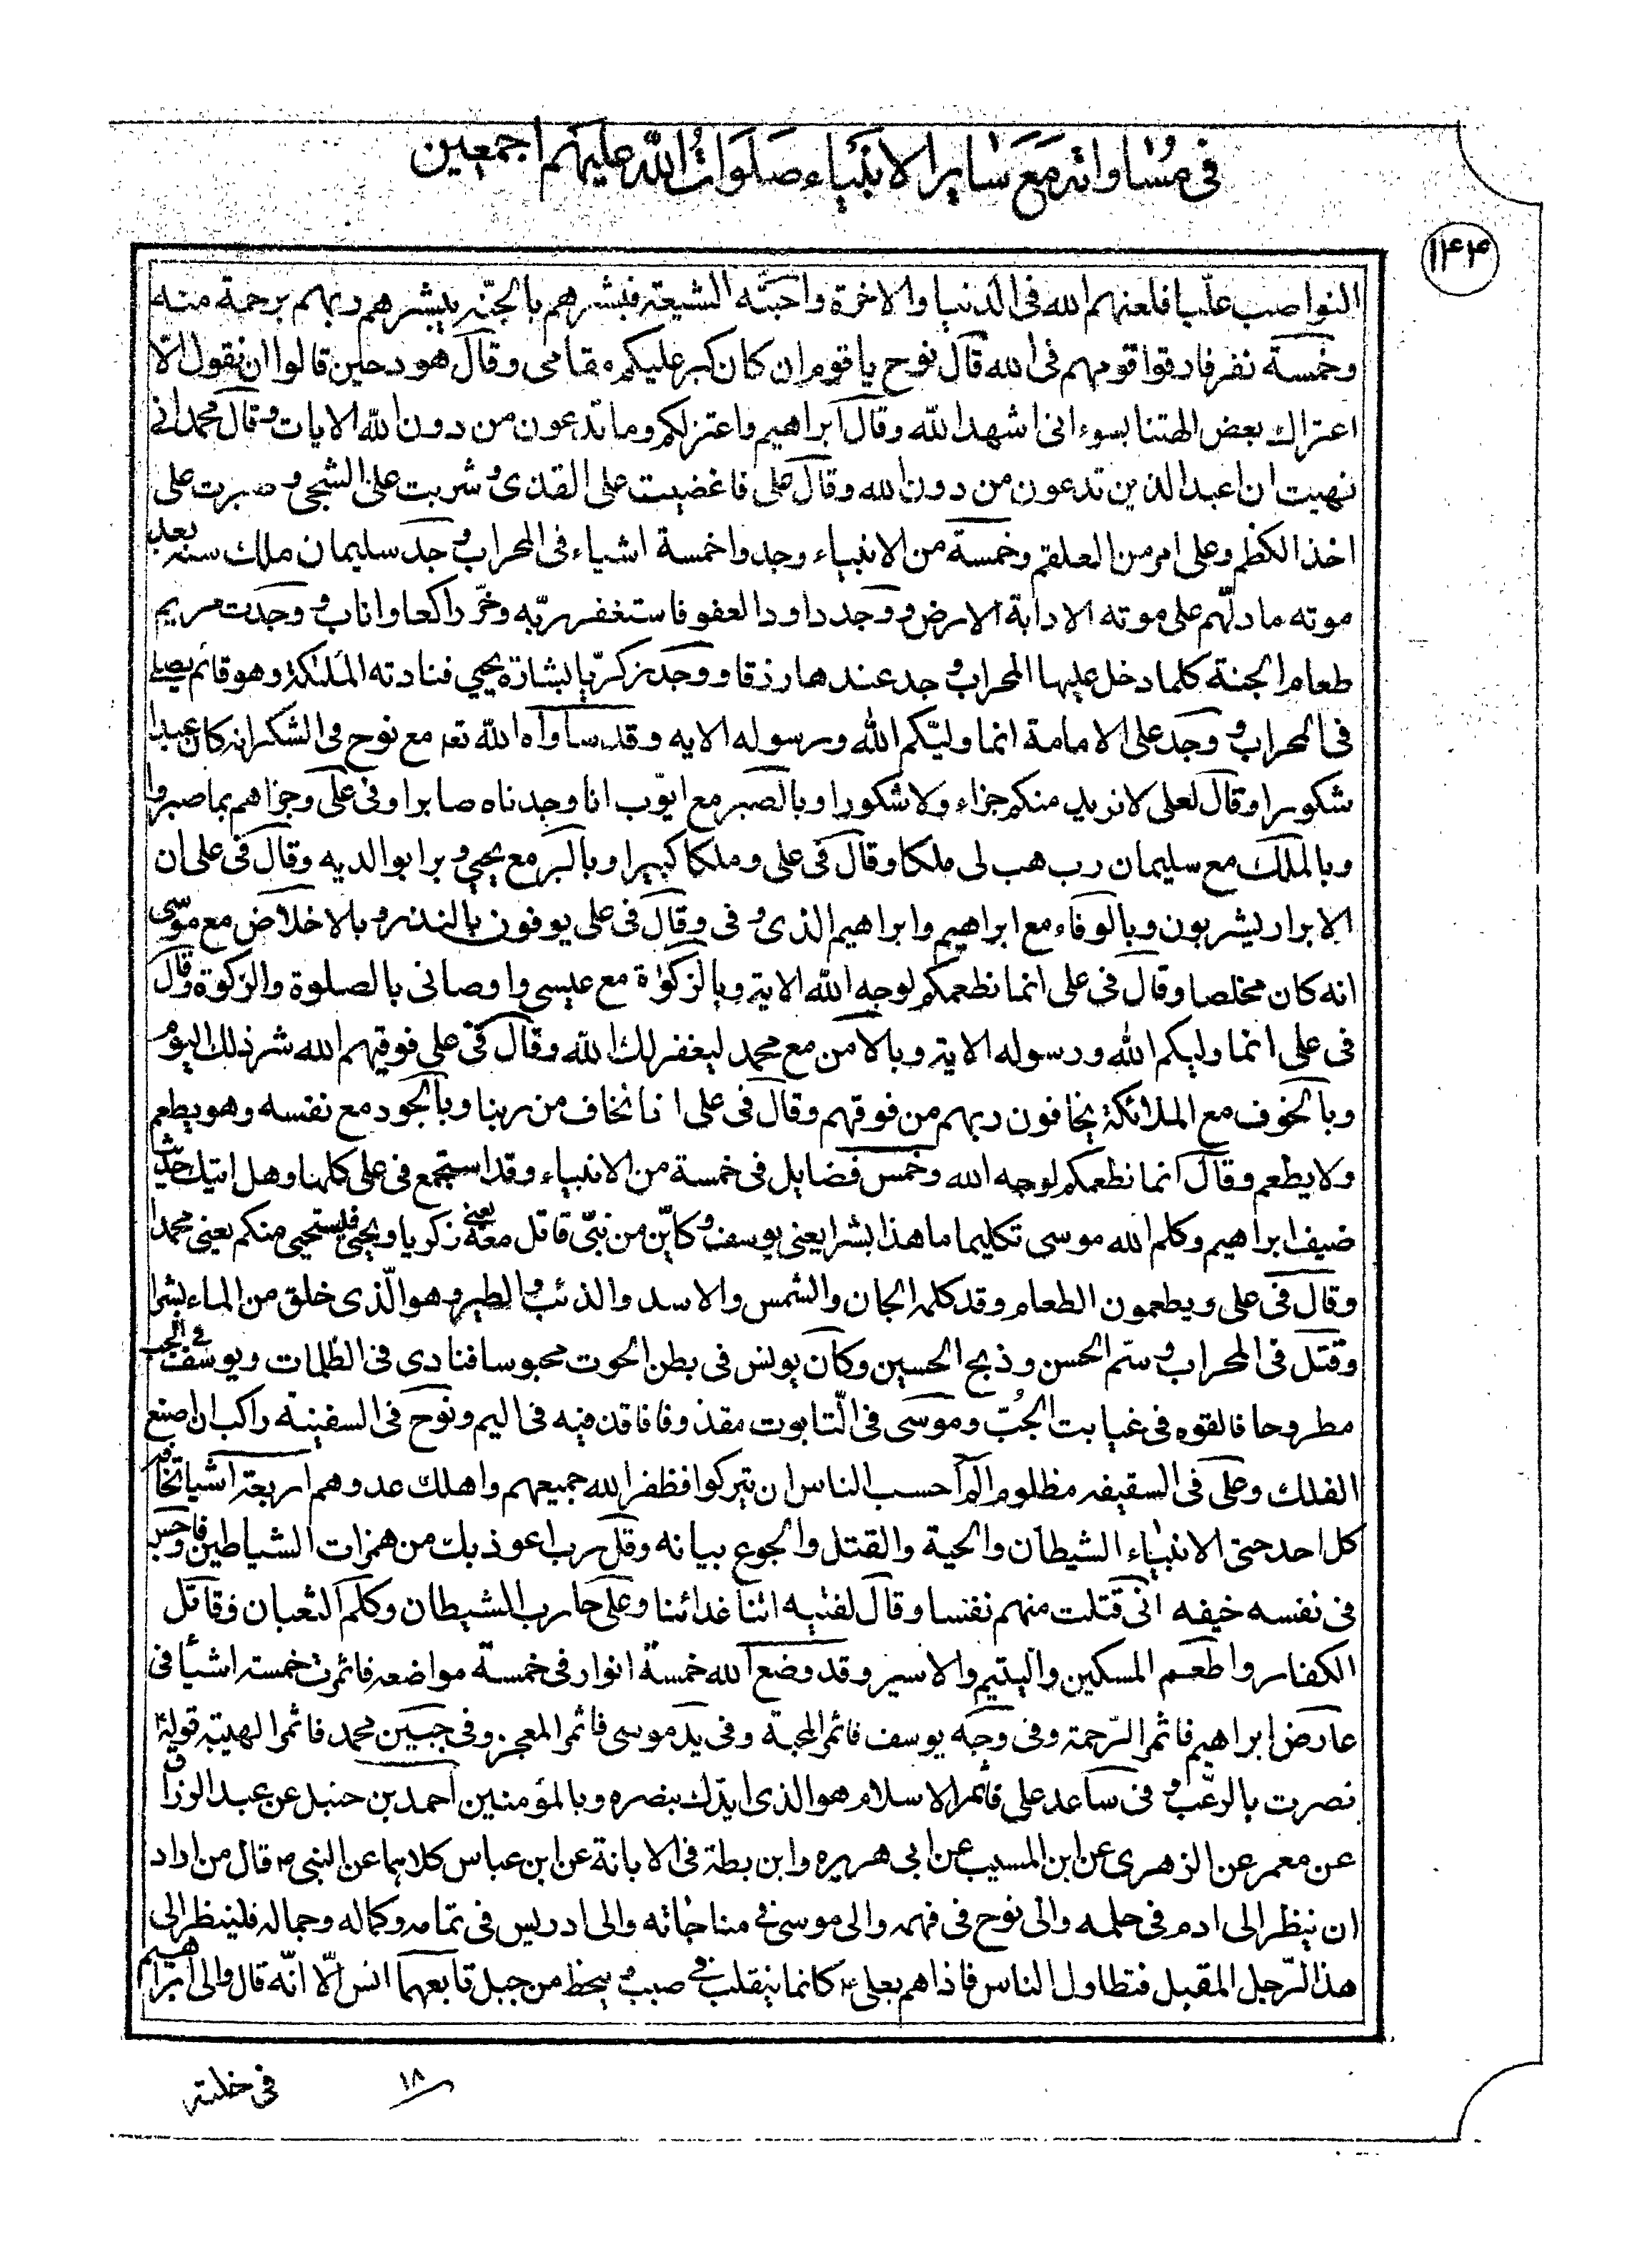 في مساواته مع ساير الانبياء صلوات الله عليهم اجمعين
١٤٤
النواصب عليا فلعنهم الله فى الدنيا والاخرة واحبته الشيعة فبشرهم بالجنة يبشرهم ربهم برحمة منه
وخمسة نفر فارقوا قومهم فى الله قال نوح يا قوم ان كان كبر عليكم مقامى وقال هود حين قالوا ان نقول الّا
اعتراك بعض الهتنا بسوء انى اشهد الله وقال ابراهيم واعتزلكم وما تدعون من دون الله الايات وقال محمد انى
نهيت ان اعبد الذين تدعون من دون الله وقال على فاغضيت على القذى وشربت على الشجى وصبرت على
اخذ الكظم وعلى امر من العلقم وخمسة من الانبياء وجدوا خمسة اشياء فى المحراب وجد سليمان ملك سنة بعد
موته ما دلّهم على موته الا دابة الارض ووجد داود العفو فاستغفر ربّه وخرّ راكعا واناب ووجدت مريم
طعام الجنة كلما دخل عليها المحراب وجد عندها رزقا ووجد زكريّا بشارة يحيي فنادته الملئكة وهو قائم يصلي
فى المحراب ووجد على الامامة انما وليّكم الله ورسوله الايه وقد ساواه الله تعه مع نوح فى الشكر انه كان عبدا
شكورا وقال لعلى لا نريد منكم جزاء ولا شكورا وبالصبر مع ايّوب انا وجدناه صابرا وفى على وجزاهم بما صبروا
وبالملك مع سليمان رب هب لى ملكا وقال فى على وملكا كبيرا وبالبر مع يحيي وبرا بوالديه وقال فى على ان
الابرار يشربون وبالوفاء مع ابراهيم وابراهيم الذى وفى وقال فى على يوفون بالنذر وبالاخلاص مع موسى
انه كان مخلصا وقال فى على انما نطعمكم لوجه الله الاية وبالزكوة مع عيسى واوصانى بالصلوة والزكوة وقال
فى على انما وليكم الله ورسوله الاية وبالامن مع محمد ليغفر لك الله وقال فى على فوقيهم الله شر ذلك اليوم
وبالخوف مع الملائكة يخافون ربهم من فوقهم وقال فى على انا نخاف من ربنا وبالجود مع نفسه وهو يطعم
ولا يطعم وقال انما نطعمكم لوجه الله وخمس فضايل فى خمسة من الانبياء وقد استجمع فى على كلها وهل اتيك حديث
ضيف ابراهيم وكلم الله موسى تكليما ما هذا بشرا يعنى يوسف وكايّن من نبىّ قاتل معه يعنى زكريا ويحيى فيستحيى منكم يعنى محمدا
وقال فى على ويطعمون الطعام وقد كلمه الجان والشمس والاسد والذئب والطير وهو الّذى خلق من الماء بشرا
وقتل فى المحراب وسمّ الحسن وذبح الحسين وكان يونس فى بطن الحوت محبوسا فنادى فى الظلمات ويوسف فى الجب
مطروحا فالقوه فى غيابت الجُبّ وموسى فى التّابوت مقذوفا فاقذفيه فى اليم ونوح فى السفينة راكب ان اصنع
الفلك وعلى فى السقيفه مظلوم الم احسب الناس ان يتركوا فظفر الله جميعهم واهلك عدوهم اربعة اشيا تخاف
كل احد حتى الانبياء الشيطان والحية والقتل والجوع بيانه وقل رب اعوذ بك من همزات الشياطين فاوجس
فى نفسه خيفه انى قتلت منهم نفسا وقال لفتيه اتنا غدائنا وعلى حارب الشيطان وكلم الثعبان وقاتل
الكفار واطعم المسكين واليتيم والاسير وقد وضع الله خمسة انوار فى خمسة مواضعه فاثمرت خمسته اشيأ فى
عارض ابراهيم فاثمر الرّحمة وفى وجه يوسف فاثمر المحبة وفى يد موسى فاثمر المعجز وفى جبين محمد فاثمر الهيبة قوله
نصرت بالرعّب وفى ساعد على فاثمر الاسلام هو الذى ايدك بنصره وبالمؤمنين احمد بن حنبل عن عبد الرزاق
عن معمر عن الزهرى عن ابن المسيب عن ابى هريره وابن بطة فى الابانة عن ابن عباس كلاهما عن النبى ص قال من اراد
ان ينظر الى ادم فى حلمه والى نوح فى فهمه والى موسى فى مناجاته والى ادريس فى تمامه وكماله وجماله فلينظر الى
هذا الرّجل المقبل فتطاول الناس فاذا هم بعلى ع كانما ينقلب فى صبب وينحط من جبل تابعهما انس الّا انّه قال والى ابراهيم
فى خلته
١٨